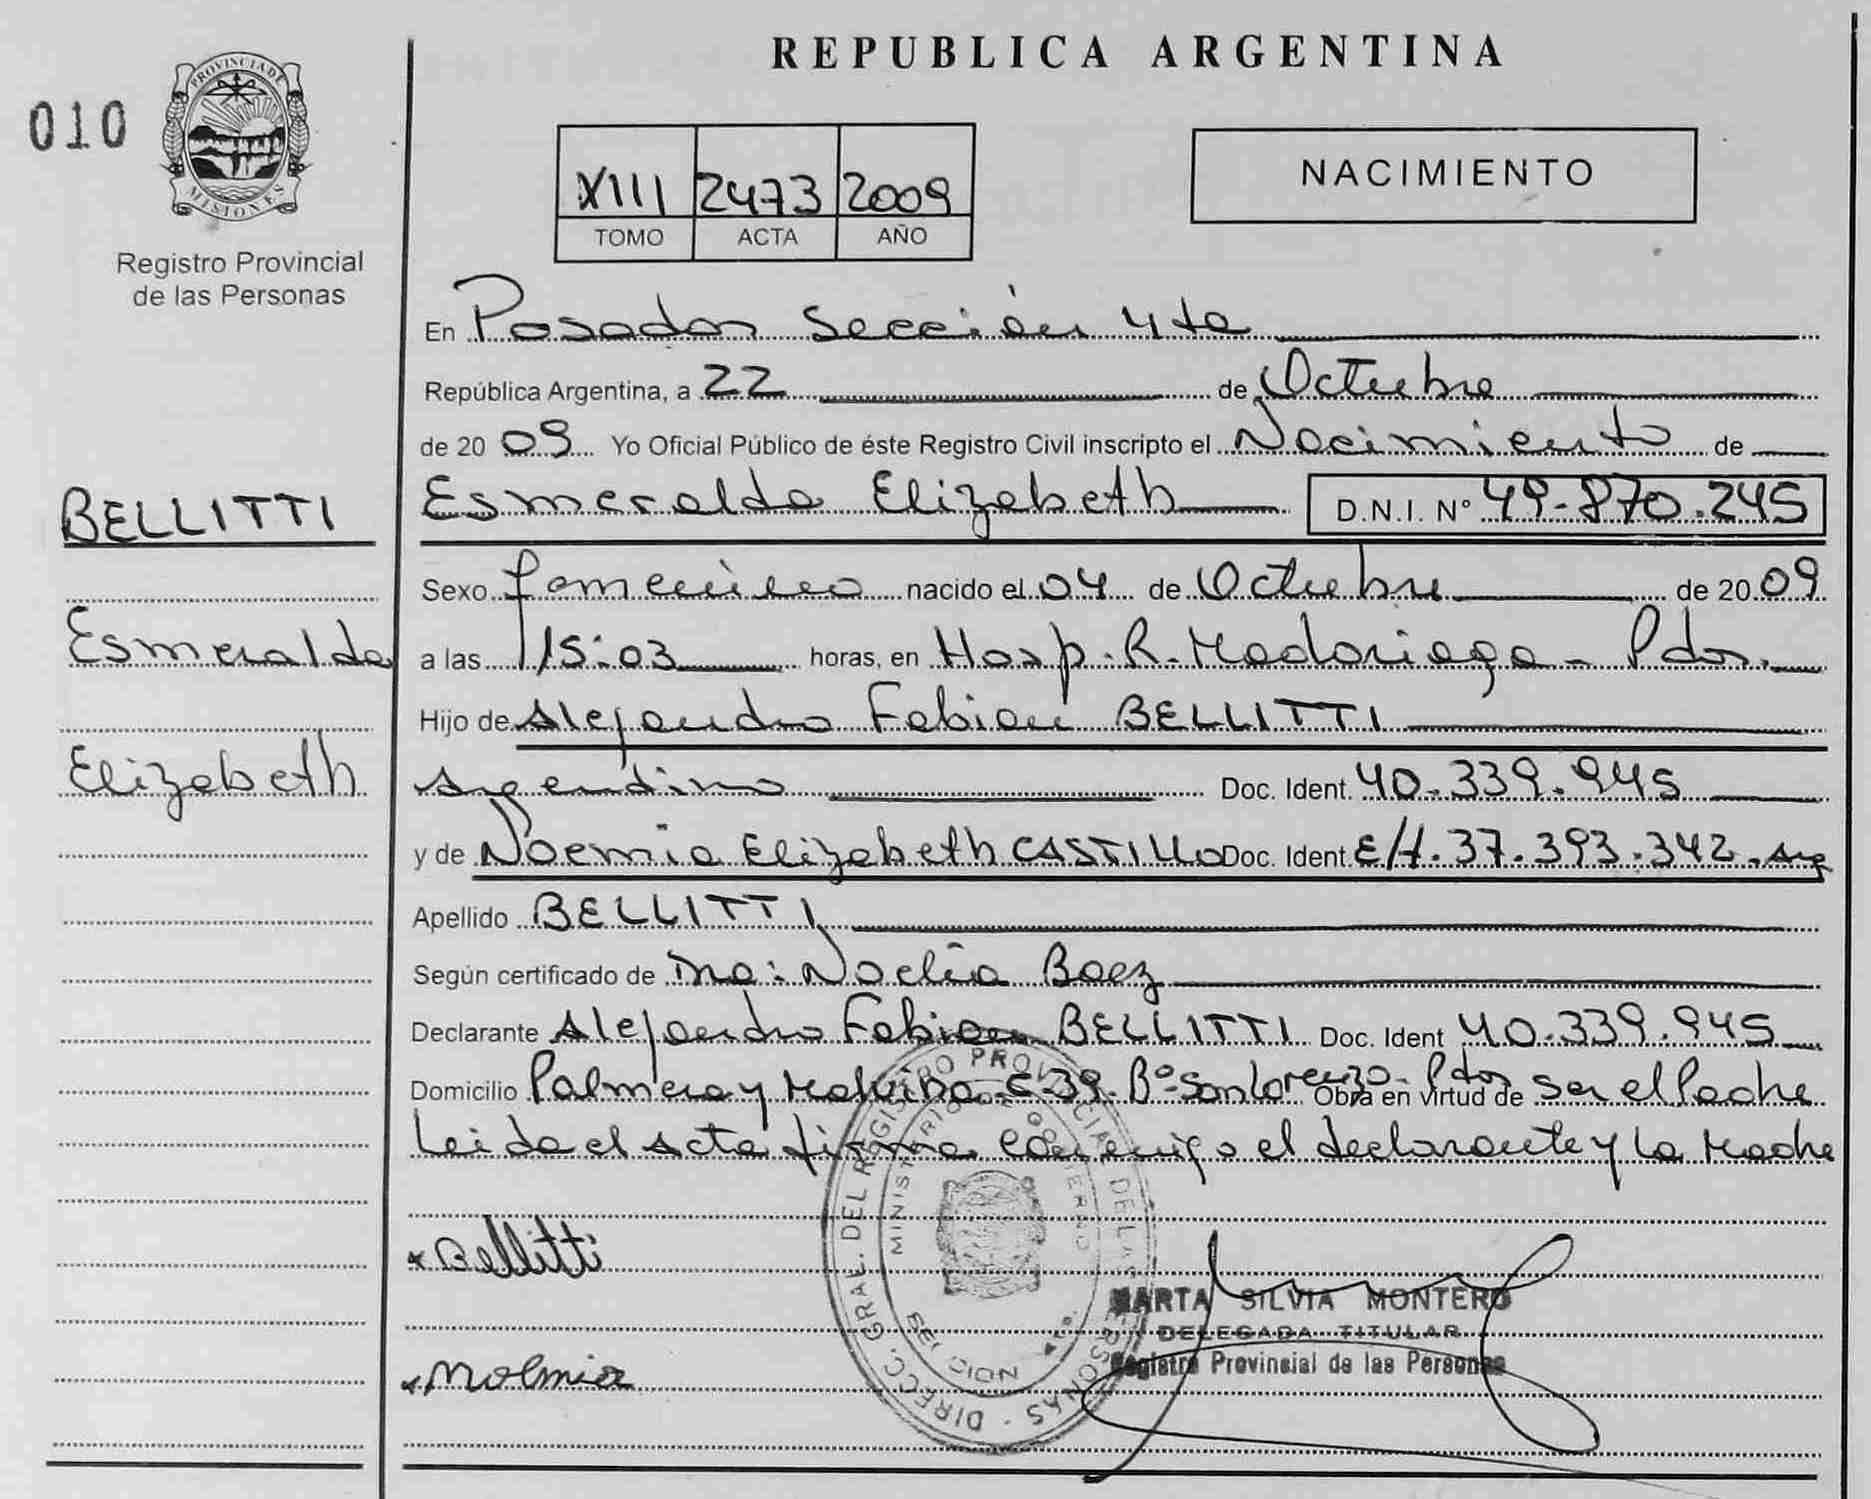 REPUBLICA ARGENTINA
010
PROVINCIA DE
MISIONES
Registro Provincial
de las Personas
XIII 2473 2009
TOMO ACTA AÑO
NACIMIENTO
En Posadas Sección 4ta
República Argentina, a 22 de Octubre
de 20 09 Yo Oficial Público de éste Registro Civil inscripto el Nacimiento de
BELLITTI
Esmeralda Elizabeth D.N.I. N° 49-870.245
Sexo femenino nacido el 04 de Octubre de 20 09
Esmeralda
a las 15:03 horas, en Hosp. R. Madariaga - Pdas.
Hijo de Alejandro Fabian BELLITTI
Elizabeth
Argentino Doc. Ident. 40.339.945
y de Noemia Elizabeth CASTILLO Doc. Ident. E/t. 37.393.342. Arg
Apellido BELLITTI
Según certificado de Dra: Noelia Baez
Declarante Alejandro Fabian BELLITTI Doc. Ident 40.339.945
Domicilio Palmera y Malvina C-39. B° San Lorenzo - Pdas Obra en virtud de Ser el Padre
Leida el Acta firma conmigo el declarante y la Madre
Bellitti
Noemia
DIRECC. GRAL. DEL REGISTRO PROVINCIAL DE LAS PERSONAS
MINISTERIO DE GOBIERNO
MARTA SILVIA MONTERO
DELEGADA TITULAR
Registro Provincial de las Personas